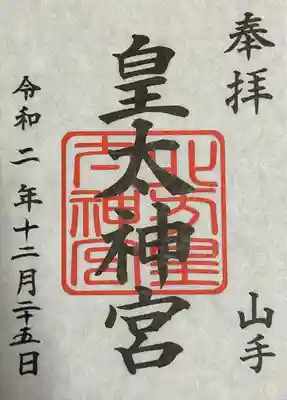 奉拝
山手
皇太神宮
北方皇
大神宮
令和二年十二月二十五日